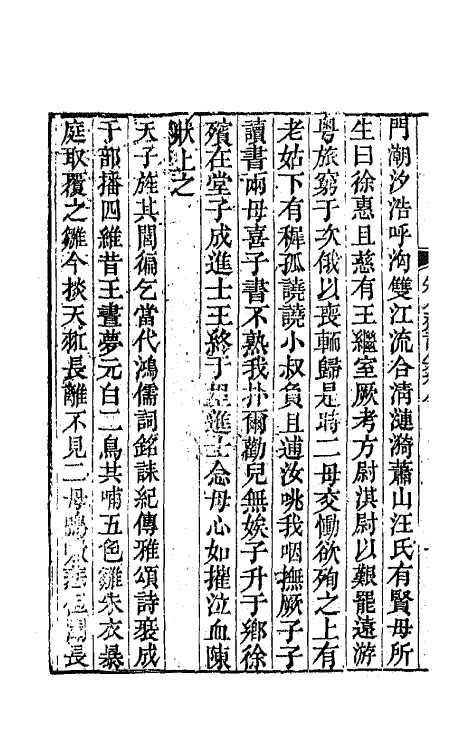 門潮汐浩呼洶雙江流合淸漣漪蕭山汪氏有賢母所
生曰徐惠且慈有王繼室厥考方尉淇尉以艱罷遠游
粵旅窮于次俄以喪輀歸是時二母交慟欲殉之上有
老姑下有穉孤譊譊小叔負且逋汝咷我咽撫厥子子
讀書兩母喜子書不熟我扑爾勸兒無娭子升于鄉徐
殯在堂子成進士王終于 進士念母心如摧泣血陳
狀上之
天子旌其閭徧乞當代鴻儒詞銘誄紀傳雅頌詩裒成
于部播四維昔王晝夢元白二鳥共哺五色雛朱衣暴
庭取覆之雛今掞天翀長離不見二母鳴 長